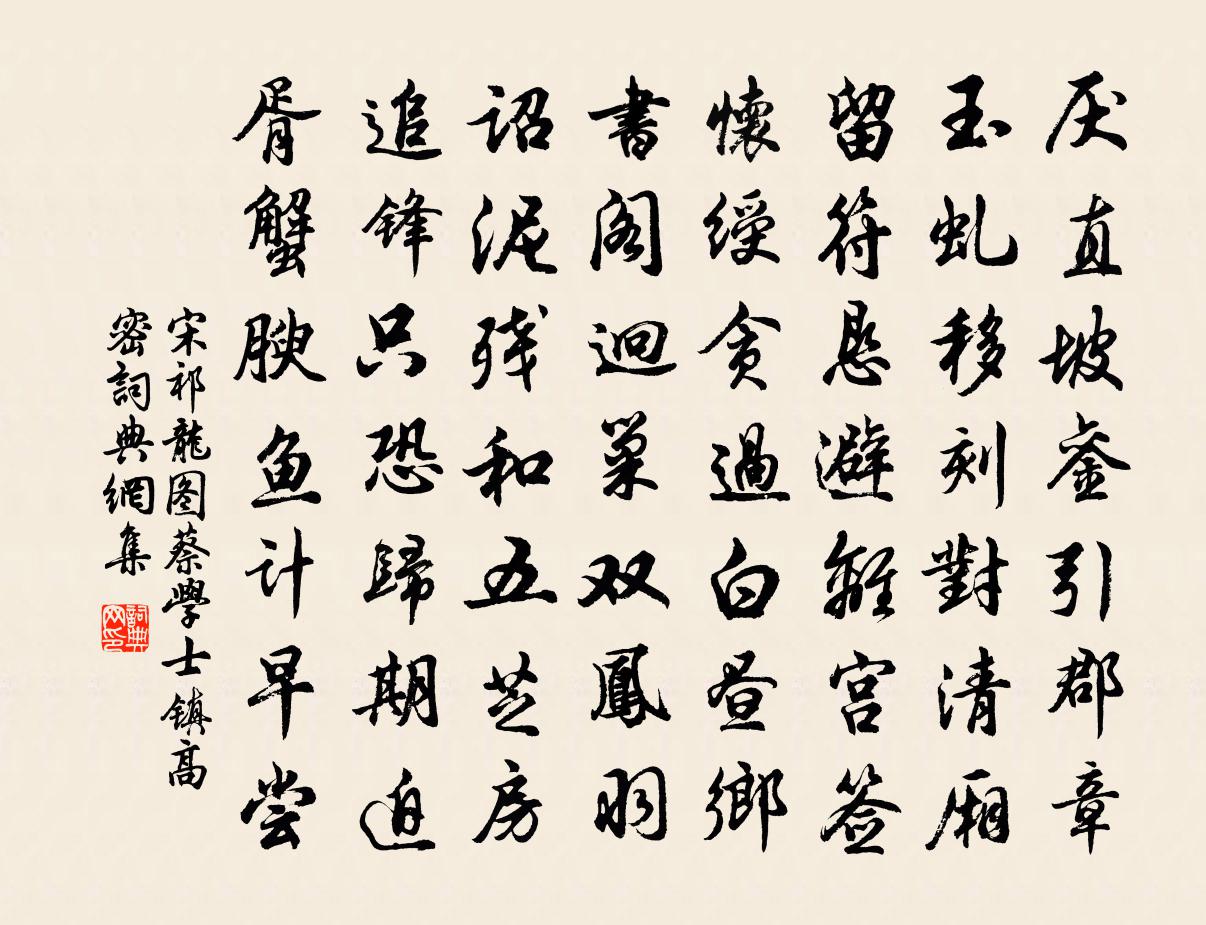 厌直坡銮引郡章
玉虬移刻對清厢
留符恳避離宫簽
懷綬贪過白昼鄉
書阁迴巢双鳳羽
詔泥残和五芝房
追锋只恐歸期迫
胥蟹腴鱼计早尝
宋祁龍图蔡學士镇高
密詞典網集
詞典
网印